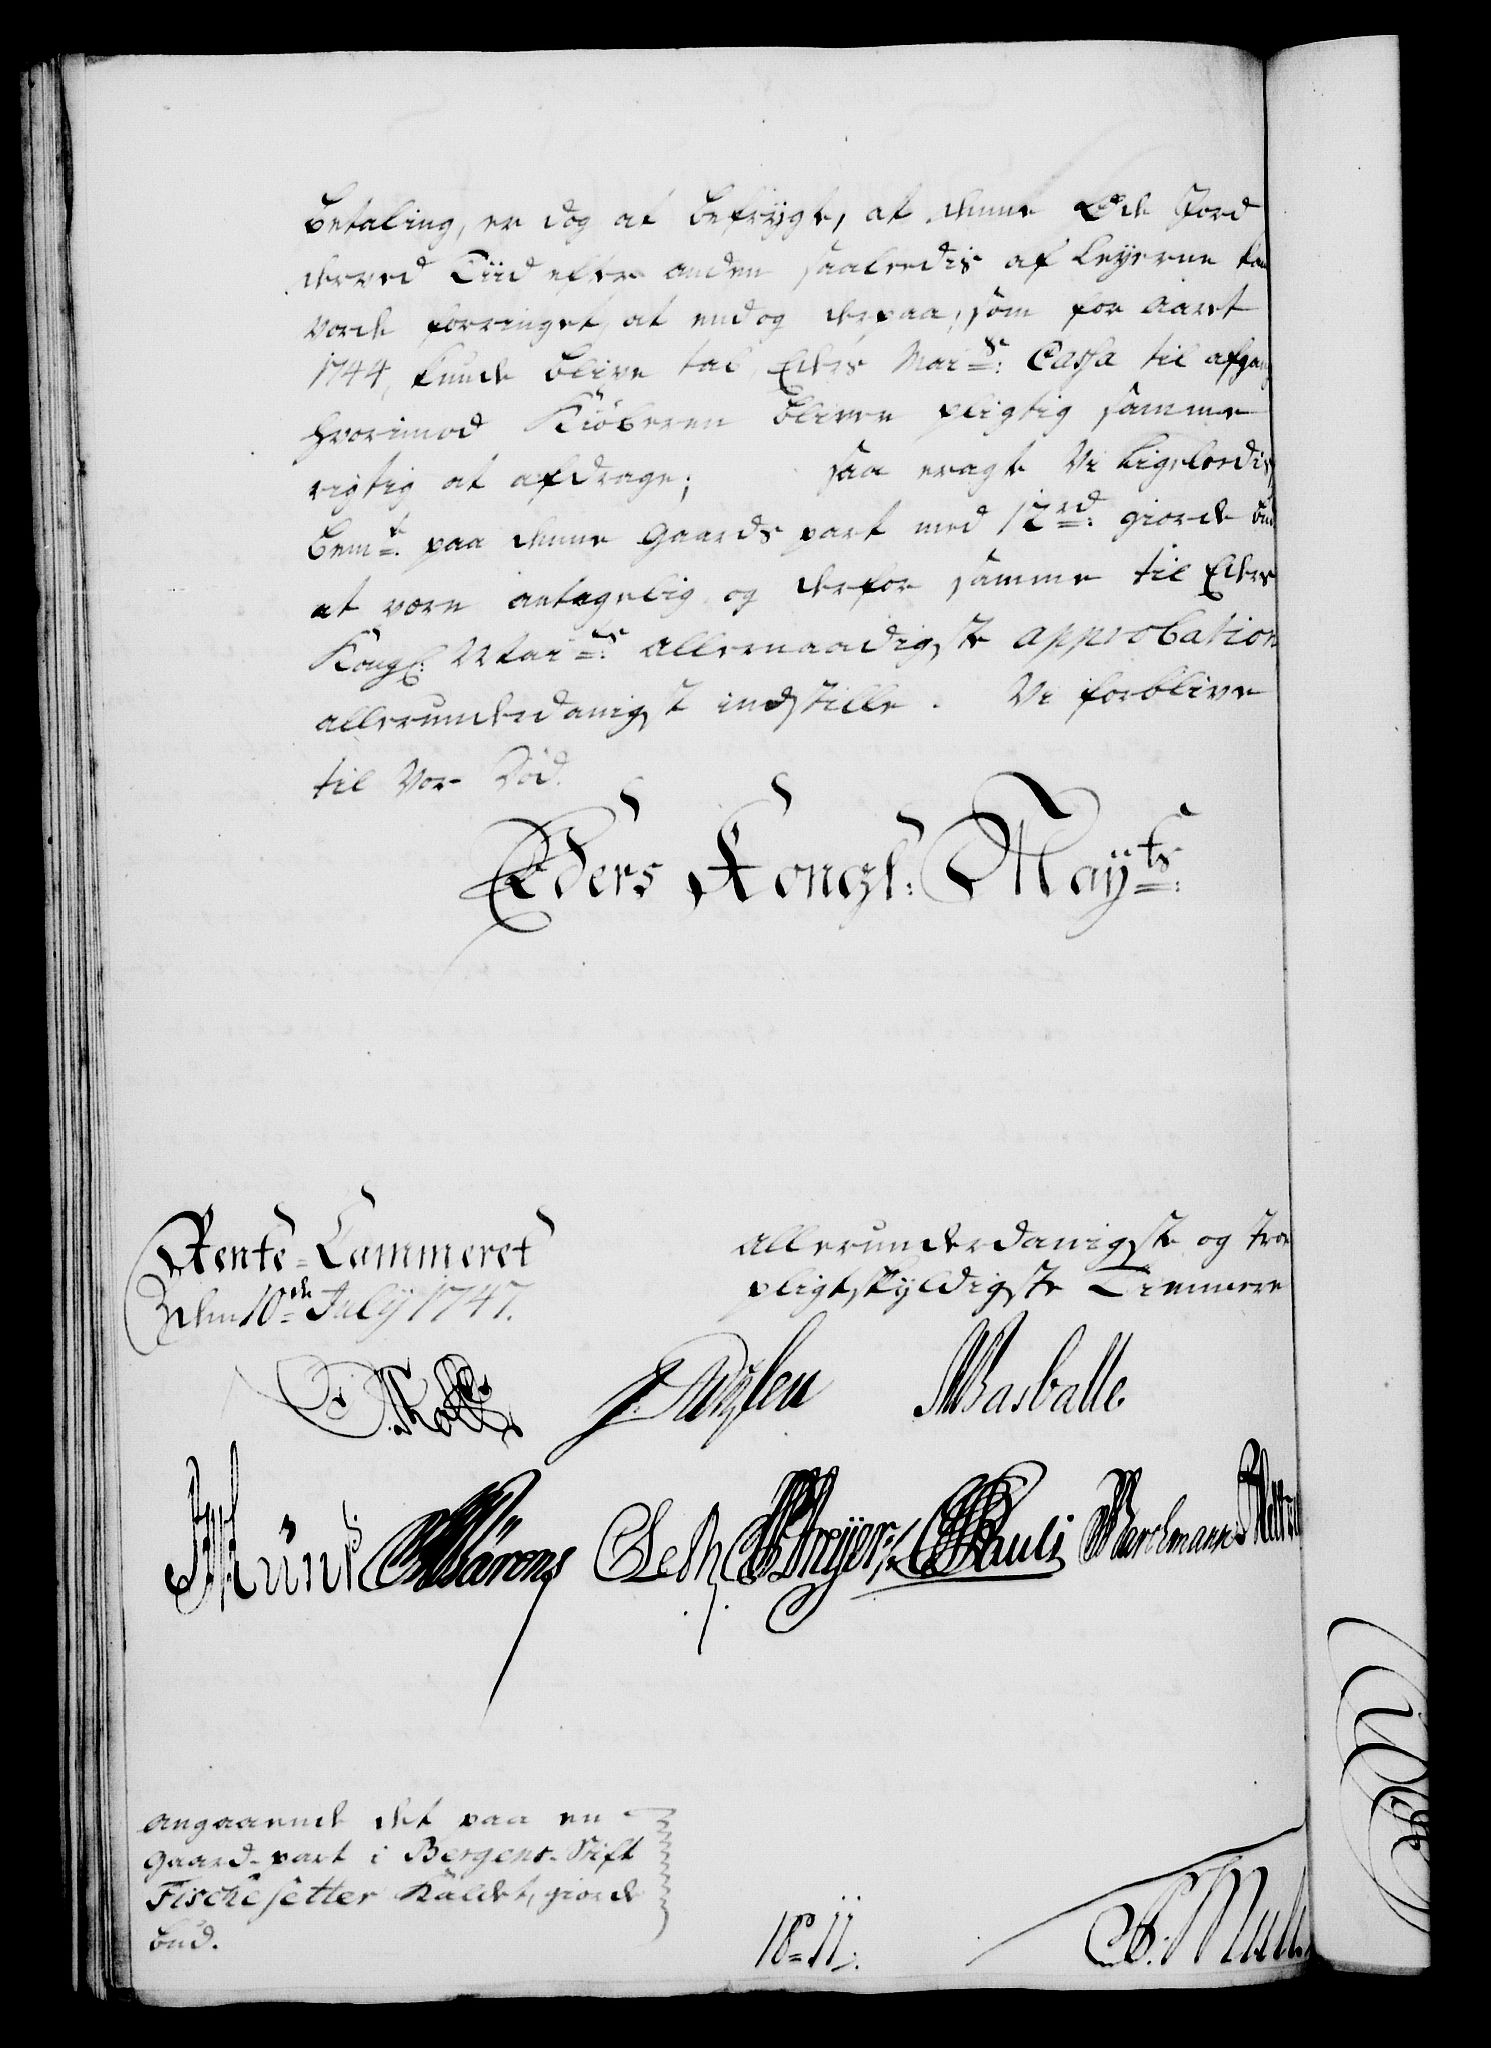 betaling, er dog at befrygte, at denne Øde Jord
derved Tiid efter anden saaledis af Leyerne kan
vorde forringet, at endog derpaa, som for Aaret
1744, kunde blive tab, Eders Mai ts: Cassa til afgang
hvorimod Kiøberen bliver pligtig samme
rigtig at afdrage; saa eragte Vi ligeledis,
bem te: paa denne Gaards part med 12 rd: giorde bud
at være antagelig og derfor samme til Eders
Kongl: Mai ts: allernaadigste approbation
allerunderdanigst indstille. Vi forblive
til Vor Død.
Eders Kongl: May ts:
Rente-Cammeret
den 10 de July 1747.
allerunderdanigste og troe
pligtskyldigste Tiennere
Rasballe
Pauli
angaaende det paa en
Gaard-part i Bergens-Stift
Fischesetter kaldet, giorde
bud.